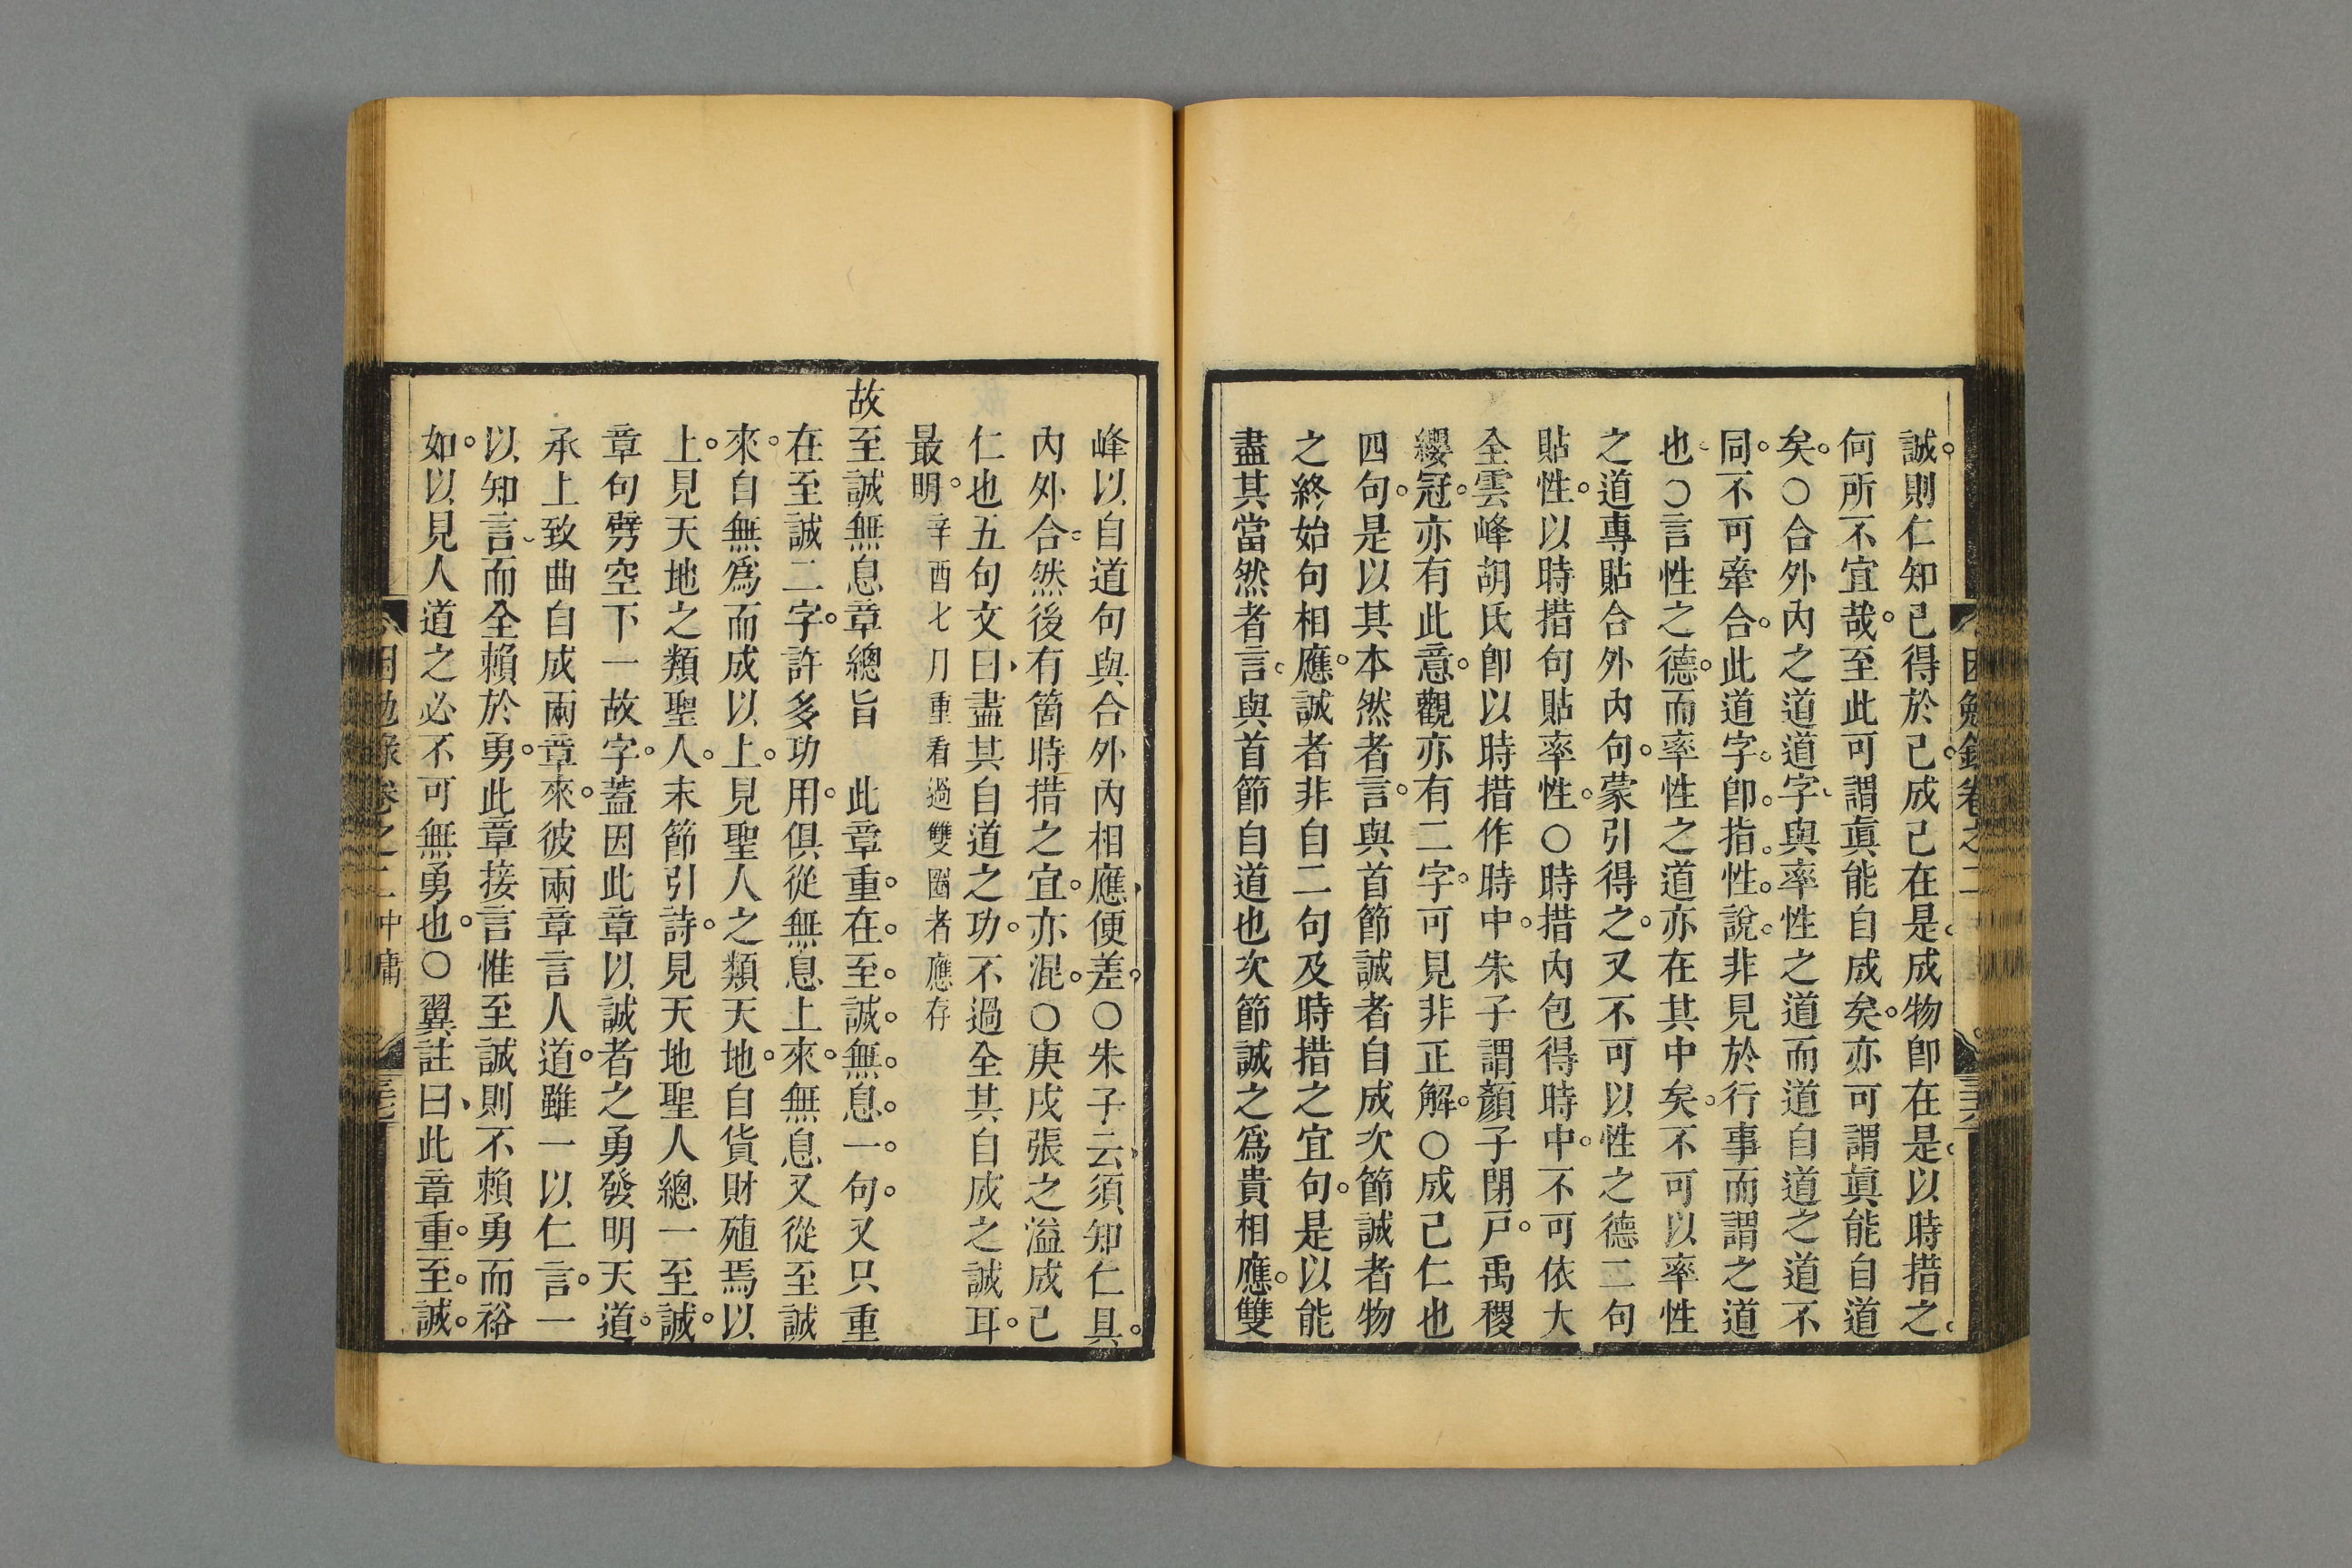 誠則仁知已得於己成己在是成物卽在是以時措之
何所不宜哉至此可謂眞能自成矣亦可謂眞能自道
矣○合外內之道道字與率性之道而道自道之道不
同不可牽合此道字卽指性說非見於行事而謂之道
也○言性之德而率性之道亦在其中矣不可以率性
之道專貼合外內句蒙引得之又不可以性之德二句
貼性以時措句貼率性○時措內包得時中不可依大
全雲峰胡氏卽以時措作時中朱子謂顏子閉戸禹稷
纓冠亦有此意觀亦有二字可見非正解○成己仁也
四句是以其本然者言與首節誠者自成次節誠者物
之終始句相應誠者非自二句及時措之宜句是以能
盡其當然者言與首節自道也次節誠之爲貴相應雙
峰以自道句與合外內相應便差○朱子云須知仁具
內外合然後有箇時措之宜亦混○庚戌張之溢成己
仁也五句文曰盡其自道之功不過全其自成之誠耳
最明辛酉七月重看過雙圈者應存
故至誠無息章總旨 此章重在至誠無息一句又只重
在至誠二字許多功用俱從無息上來無息又從至誠
來自無爲而成以上見聖人之類天地自貨財殖焉以
上見天地之類聖人末節引詩見天地聖人總一至誠
章句劈空下一故字蓋因此章以誠者之勇發明天道
承上致曲自成兩章來彼兩章言人道雖一以仁言一
以知言而全賴於勇此章接言惟至誠則不賴勇而裕
如以見人道之必不可無勇也○翼註曰此章重至誠
困勉錄卷之二 中庸